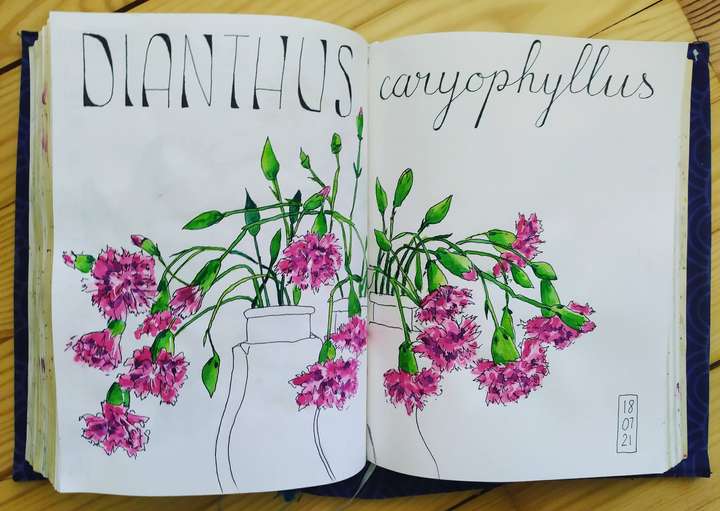 DIANTHUS caryophyllus
18
07
21